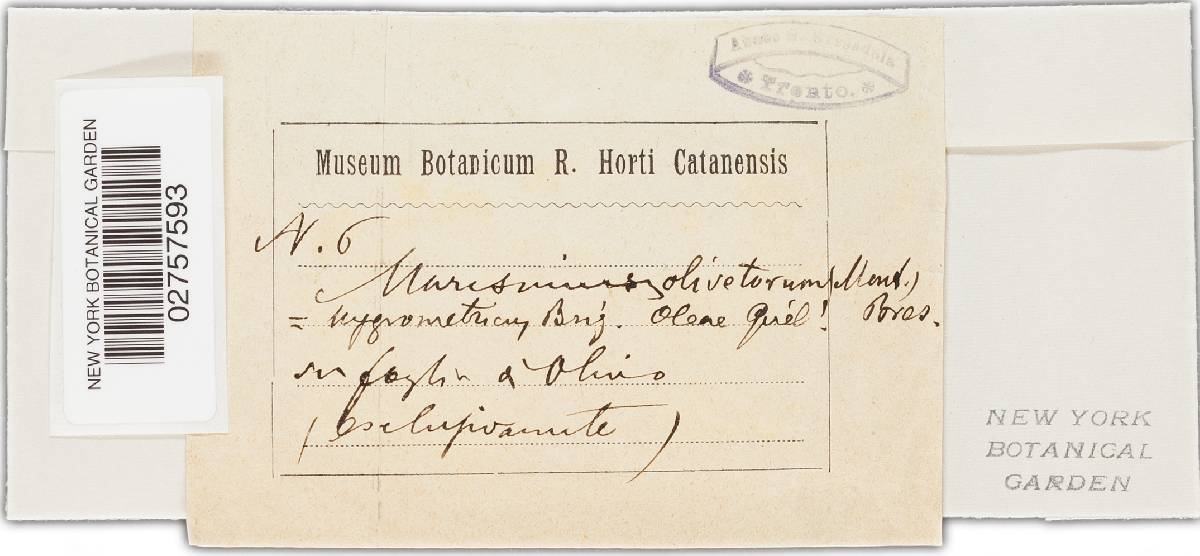 Trento.
Museum Botanicum R. Horti Catanensis
N. 6
Marasmius olivetorum (Mont.)
= hygrometricus Brig. Oleae Quél! Bres.
foglie Olivo
(esclusivamente)
NEW YORK BOTANICAL GARDEN
02757593
NEW YORK
BOTANICAL
GARDEN